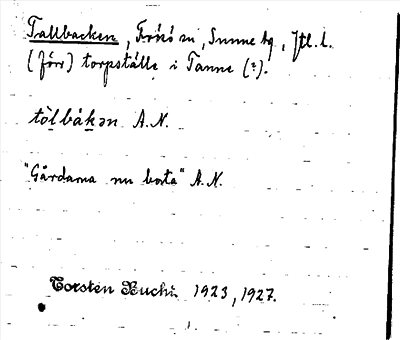 Tallbacken, Frösö sn, Sunne tg, Jtl. l.
(Förr) torpställe i Tanne (?).
tòlbákən A.N.
"Gårdarna nu borta" A.N.
Torsten Bucht 1923, 1927.